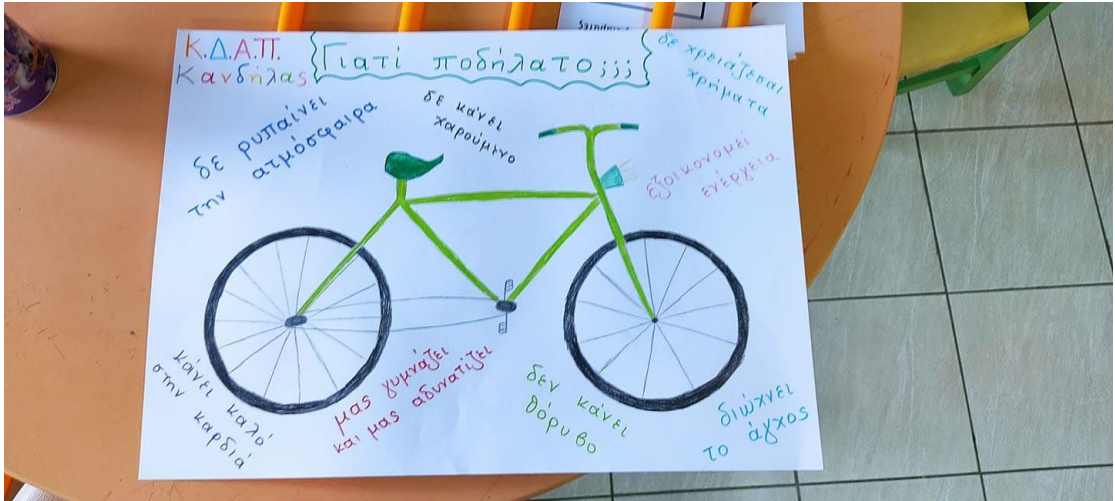 Κ.Δ.Α.Π.
Κανδήλας
Γιατί ποδήλατο;;;
δε χρειάζεσαι
χρήματα
δε ρυπαίνει
την ατμόσφαιρα
δε κάνει
χαρούμενο
εξοικονομεί
ενέργεια
κάνει καλό
στην καρδιά
μας γυμνάζει
και μας αδυνατίζει
δεν κάνει
θόρυβο
διώχνει
το άγχος